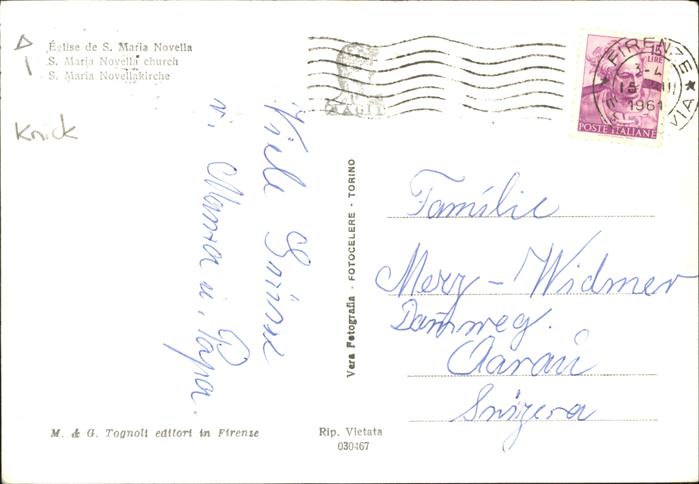 Église de S. Maria Novella
S. Maria Novella church
S. Maria Novellakirche
Knick
Viele Grüsse
v. Mamma u. Papa.
Vera Fotografia - FOTOCELERE - TORINO
FIRENZE
1961
15 LIRE
POSTE ITALIANE
Familie
Merz-Widmer
Dammweg.
Aarau
Svizzera
M. & G. Tognoli editori in Firenze
Rip. Vietata
030467